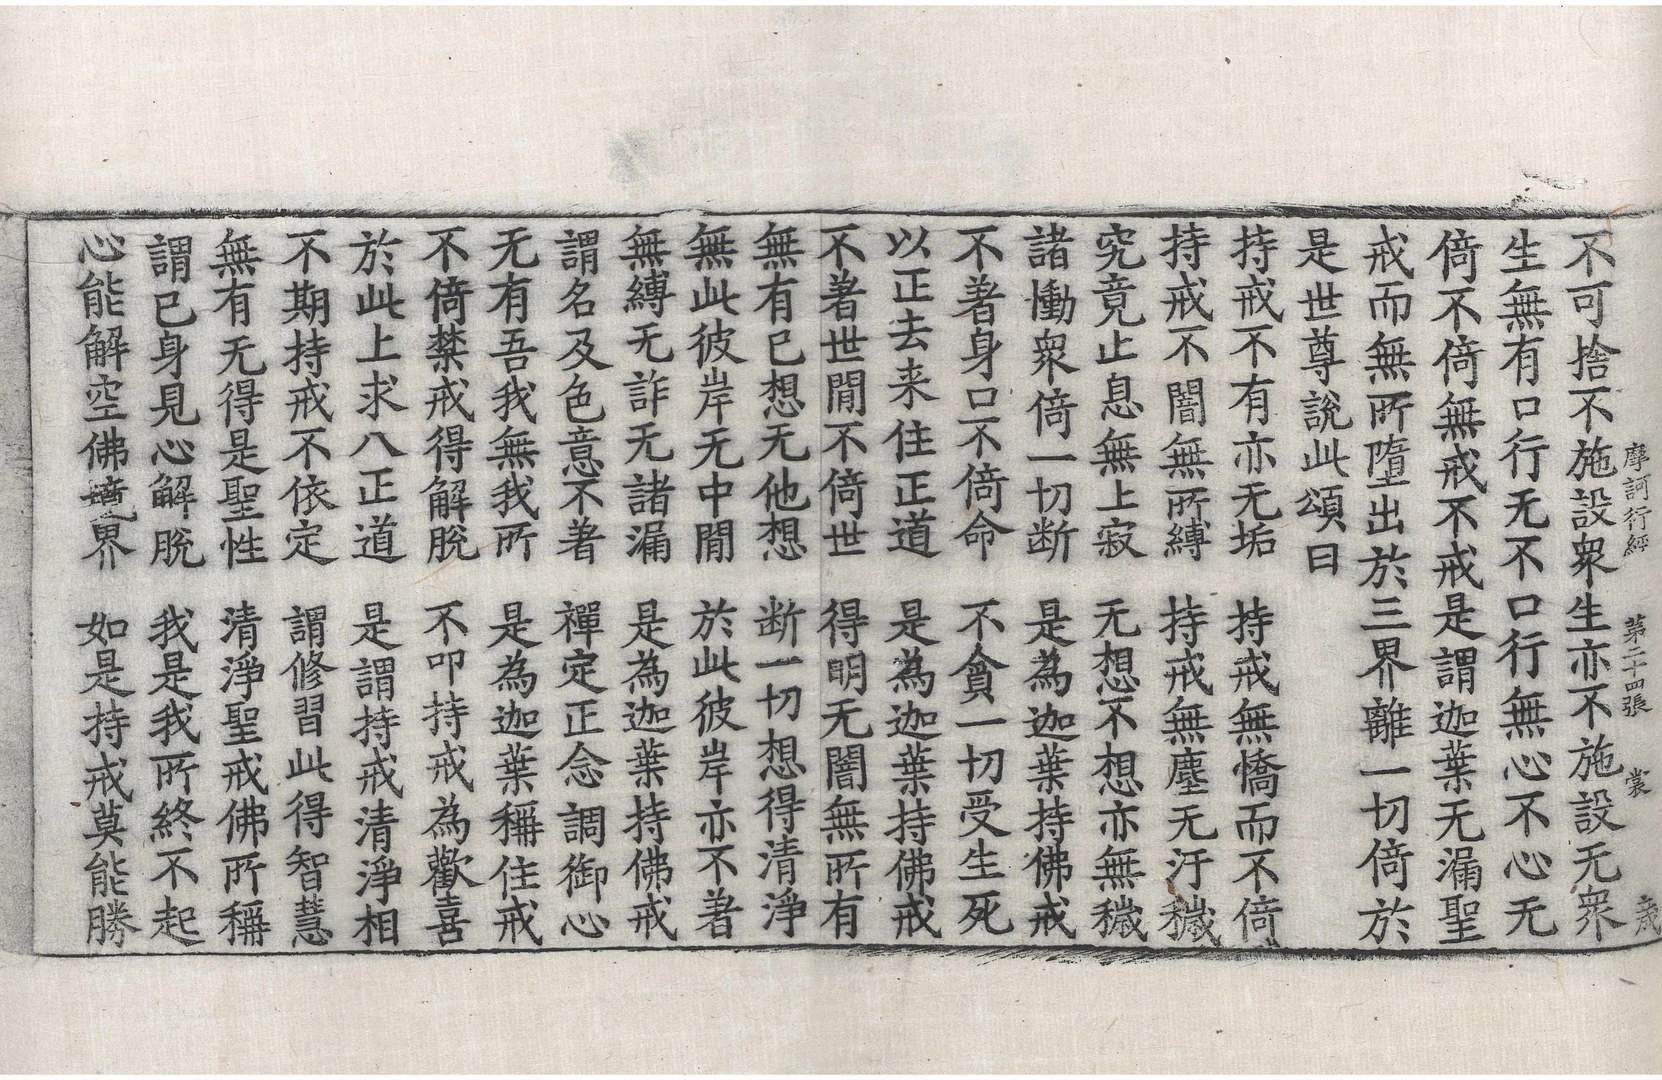 摩訶衍經　第二十四張　裳
不可捨不施設衆生亦不施設无衆
生無有口行无不口行無心不心无
倚不倚無戒不戒是謂迦葉无漏聖
戒而無所墮出於三界離一切倚於
是世尊說此頌曰
持戒不有亦无垢　持戒無憍而不倚
持戒不闇無所縛　持戒無塵无汙穢
究竟止息無上寂　无想不想亦無穢
諸慟衆倚一切断　是為迦葉持佛戒
不著身口不倚命　不貪一切受生死
以正去来住正道　是為迦葉持佛戒
不著世間不倚世　得明无闇無所有
無有已想无他想　断一切想得清淨
無此彼岸无中間　於此彼岸亦不著
無縛无詐无諸漏　是為迦葉持佛戒
謂名及色意不著　禪定正念調御心
无有吾我無我所　是為迦葉稱住戒
不倚禁戒得解脫　不叩持戒為歡喜
於此上求八正道　是謂持戒清淨相
不期持戒不依定　謂修習此得智慧
無有无得是聖性　清淨聖戒佛所稱
謂已身見心解脫　我是我所終不起
心能解空佛境界　如是持戒莫能勝